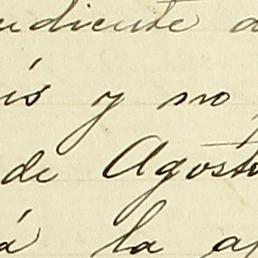 udiente d
is y no
de Agosto
á la ap